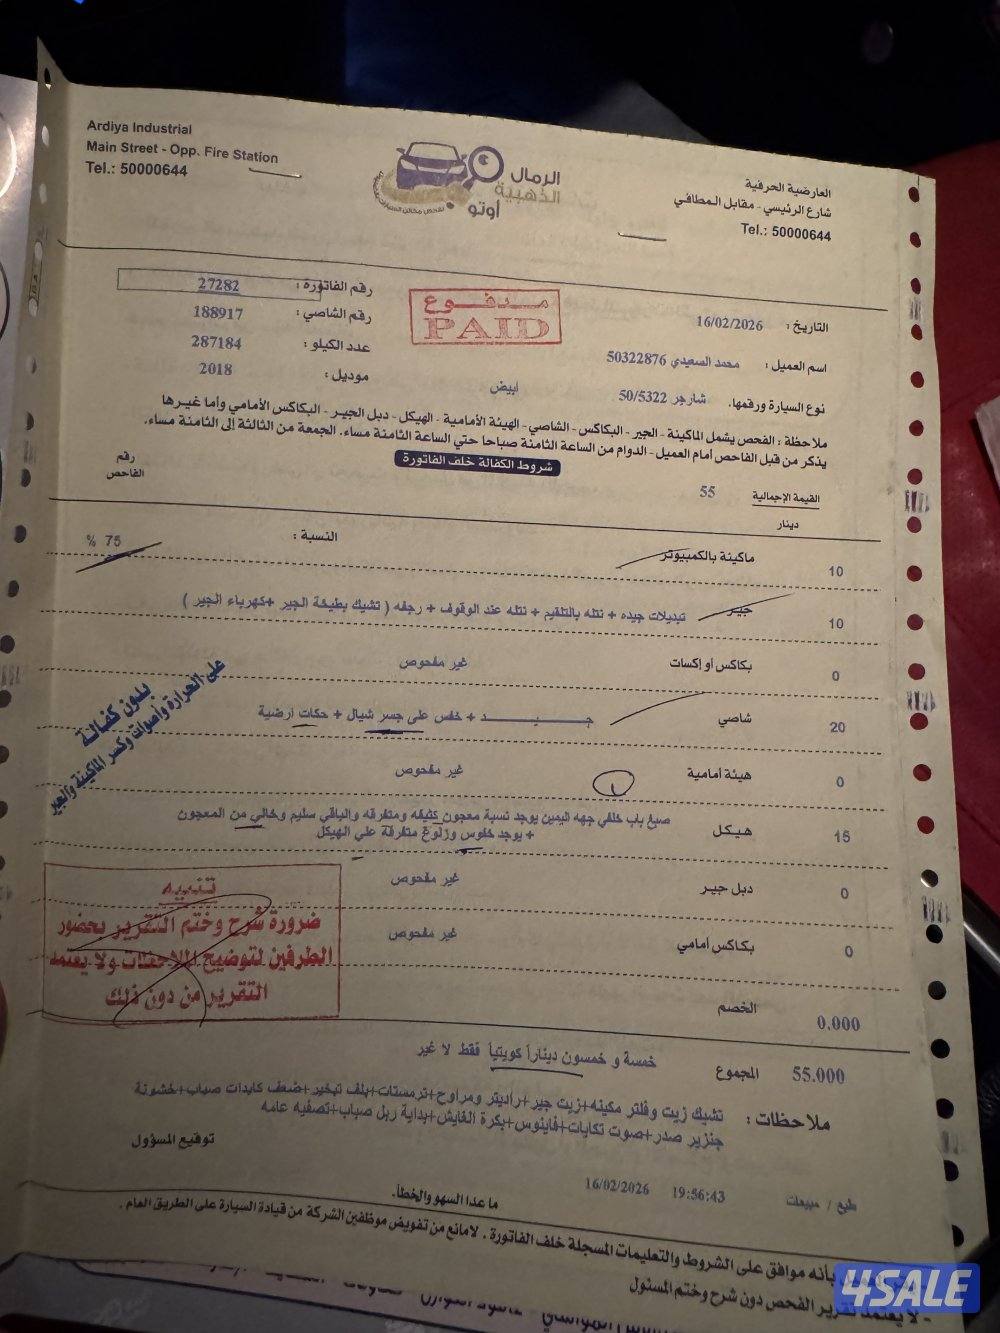 Ardiya Industrial
Main Street - Opp. Fire Station
Tel.: 50000644
الرمال
الذهبية
أوتو
العارضية الحرفية
شارع الرئيسي - مقابل المطافي
Tel.: 50000644
رقم الفاتورة : 27282
رقم الشاصي : 188917
عدد الكيلو : 287184
موديل : 2018
مدفوع
PAID
التاريخ : 16/02/2026
اسم العميل : محمد السعيدي 50322876
نوع السيارة ورقمها. شارجر 50/5322 أبيض
ملاحظة : الفحص يشمل الماكينة - الجير - البكاكس - الشاصي - الهيئة الأمامية - الهيكل - دبل الجير - البكاكس الأمامي وأما غيرها
يذكر من قبل الفاحص أمام العميل - الدوام من الساعة الثامنة صباحا حتي الساعة الثامنة مساء. الجمعة من الثالثة إلى الثامنة مساء.
شروط الكفالة خلف الفاتورة
رقم
الفاحص
القيمة الإجمالية 55
دينار
10 ماكينة بالكمبيوتر النسبة : 75 %
10 جير تبديلات جيده + نتله بالتلقيم + نتله عند الوقوف + رجفه ( تشيك بطيخة الجير +كهرباء الجير )
0 بكاكس أو إكسات غير مفحوص
20 شاصي جـــيـــد + خفس على جسر شيال + حكات أرضية
0 هيئة أمامية غير مفحوص
بدون كفالة
على الحرارة وأصوات وكسر الماكينة والجير
15 هيكل صبغ باب خلفي جهه اليمين يوجد نسبة معجون كثيفه ومتفرقه والباقي سليم وخالي من المعجون
+ يوجد خفوس وزلوغ متفرقة على الهيكل
0 دبل جير غير مفحوص
0 بكاكس أمامي غير مفحوص
تنبيه
ضرورة شرح وختم التقرير بحضور
الطرفين لتوضيح الملاحظات ولا يعتمد
التقرير من دون ذلك
0.000 الخصم
55.000 المجموع خمسة و خمسون ديناراً كويتياً فقط لا غير
ملاحظات : تشيك زيت وفلتر مكينه+زيت جير+راديتر ومراوح+ترمستات+بلف تبخير+ضعف كايدات صباب+خشونة
جنزير صدر+صوت تكايات+فاينوس+بكرة القايش+بداية ربل صباب+تصفيه عامه
توقيع المسؤول
طبع / مبيعات 19:56:43 16/02/2026
ما عدا السهو والخطأ.
بأنه موافق على الشروط والتعليمات المسجلة خلف الفاتورة . لامانع من تفويض موظفين الشركة من قيادة السيارة على الطريق العام .
- لا يعتمد تقرير الفحص دون شرح وختم المسئول
4SALE